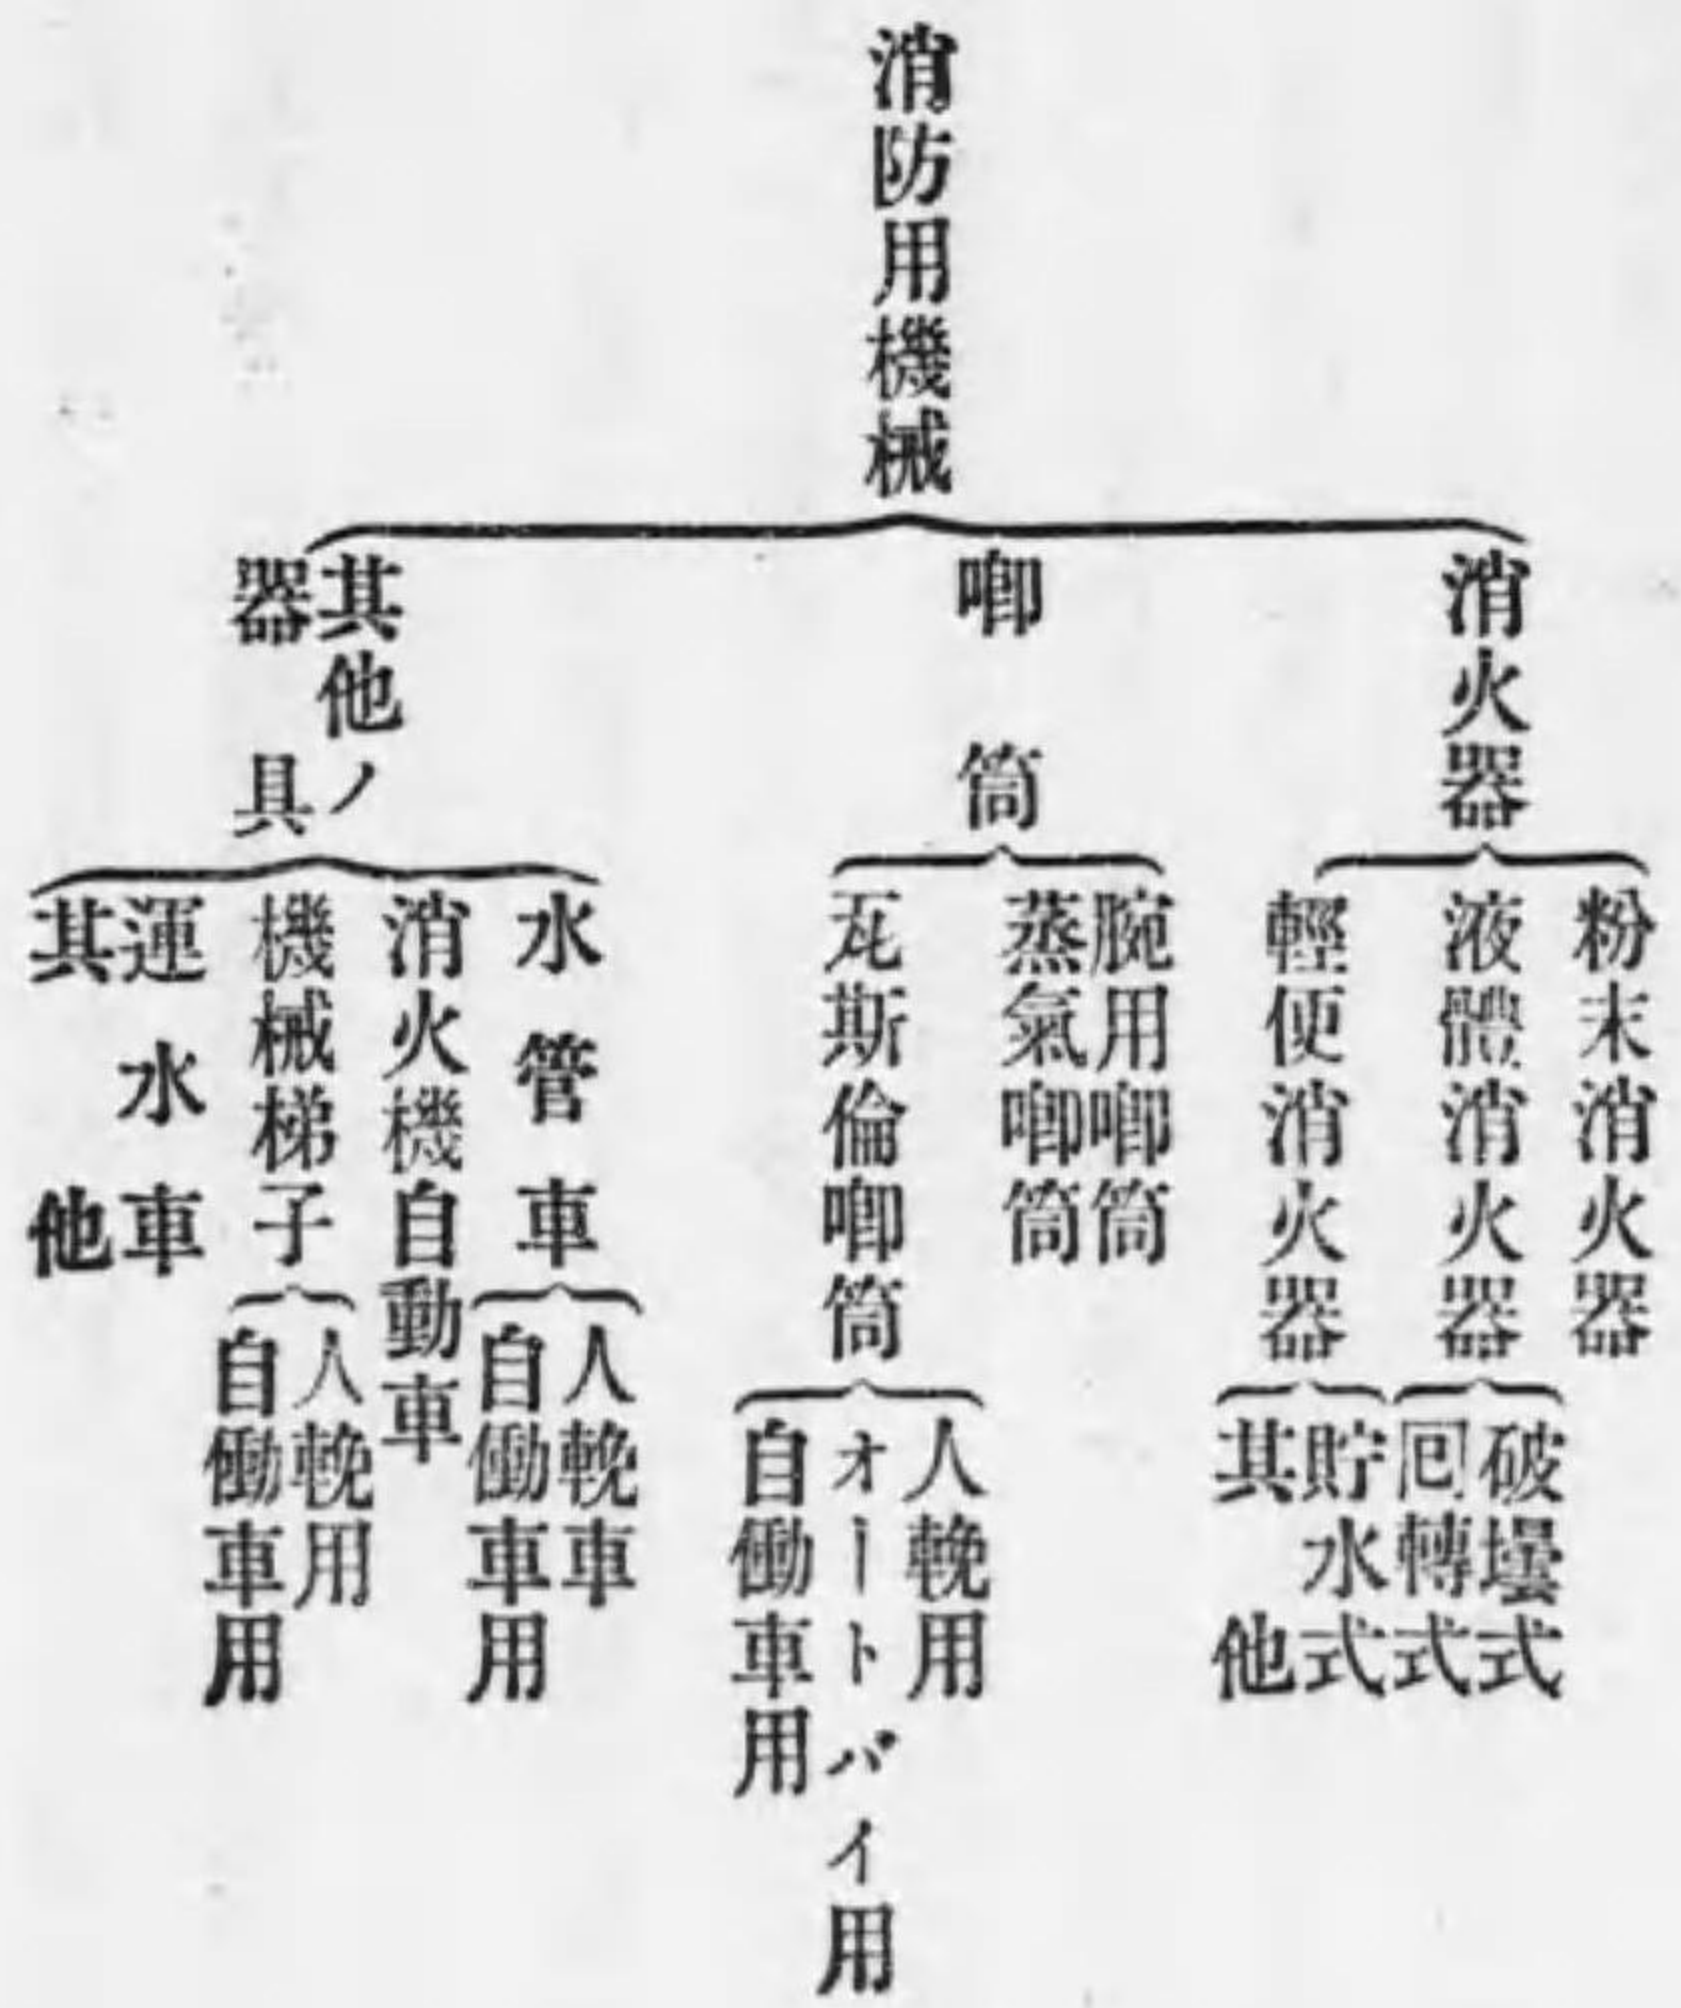 消防用機械
消火器
粉末消火器
液體消火器
破壜式
囘轉式
輕便消火器
貯水式
其他
喞筒
腕用喞筒
蒸氣喞筒
瓦斯倫喞筒
人輓用
オートバイ用
自働車用
其他ノ
器具
水管車
人輓車
自働車用
消火機自動車
機械梯子
人輓用
自働車用
運水車
其他